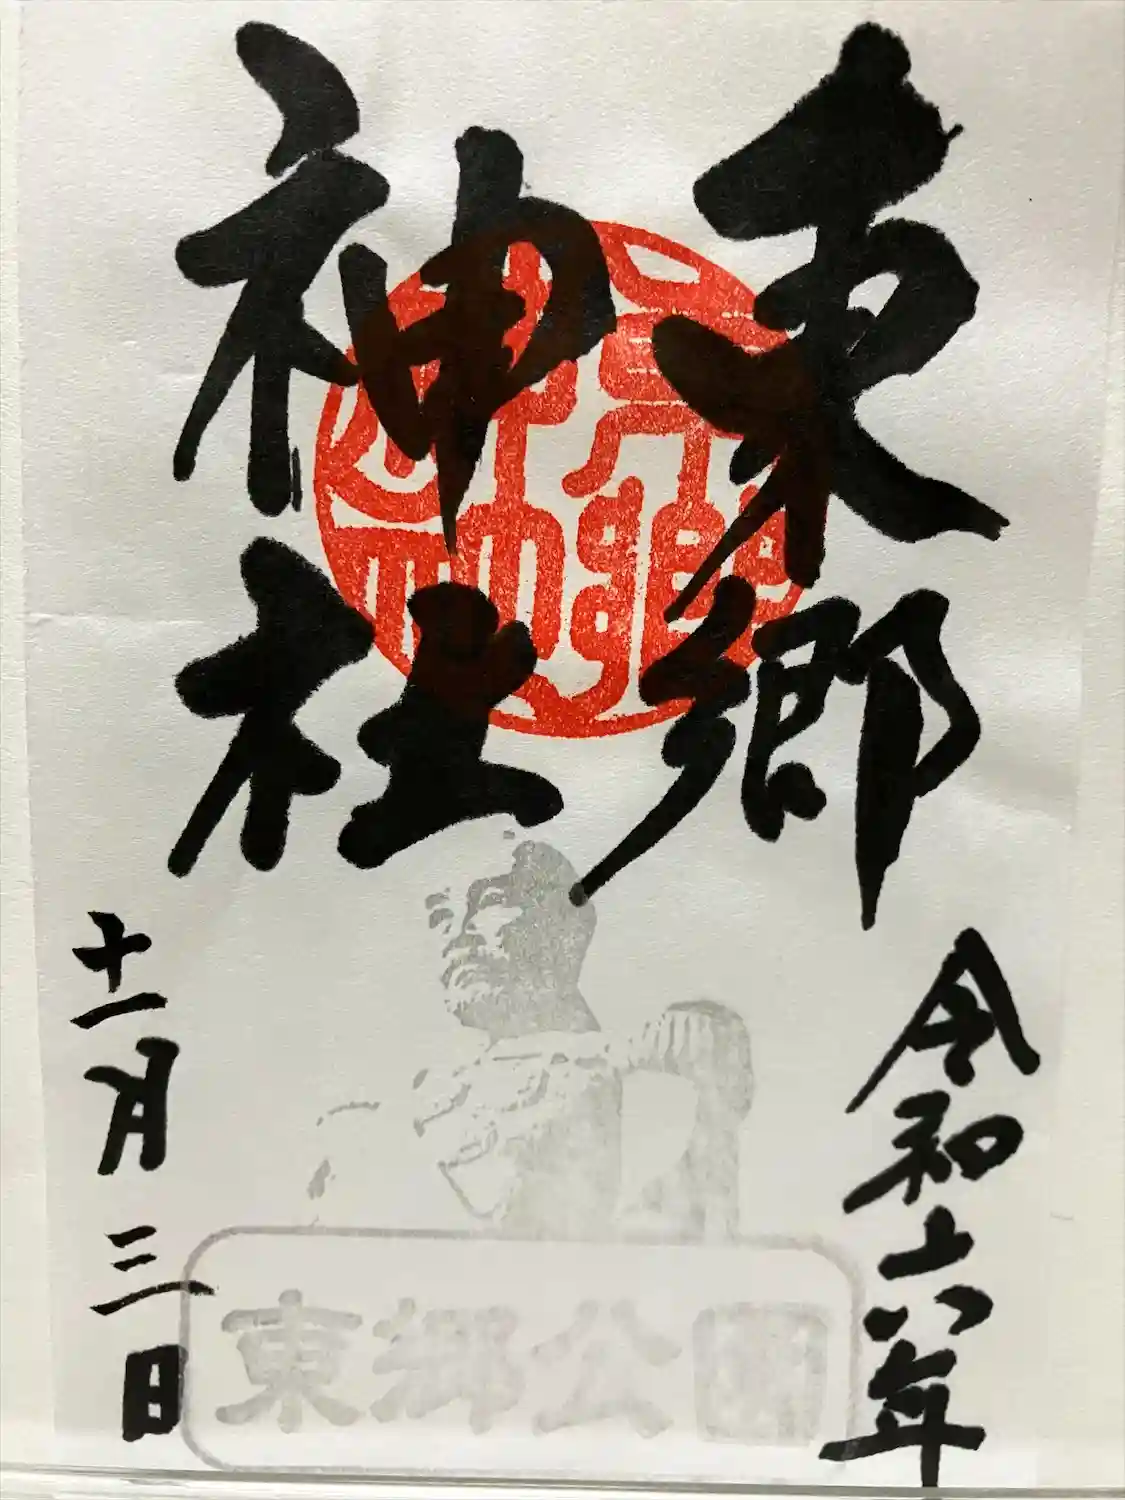 東郷
神社
令和六年
十一月三日
東郷公園